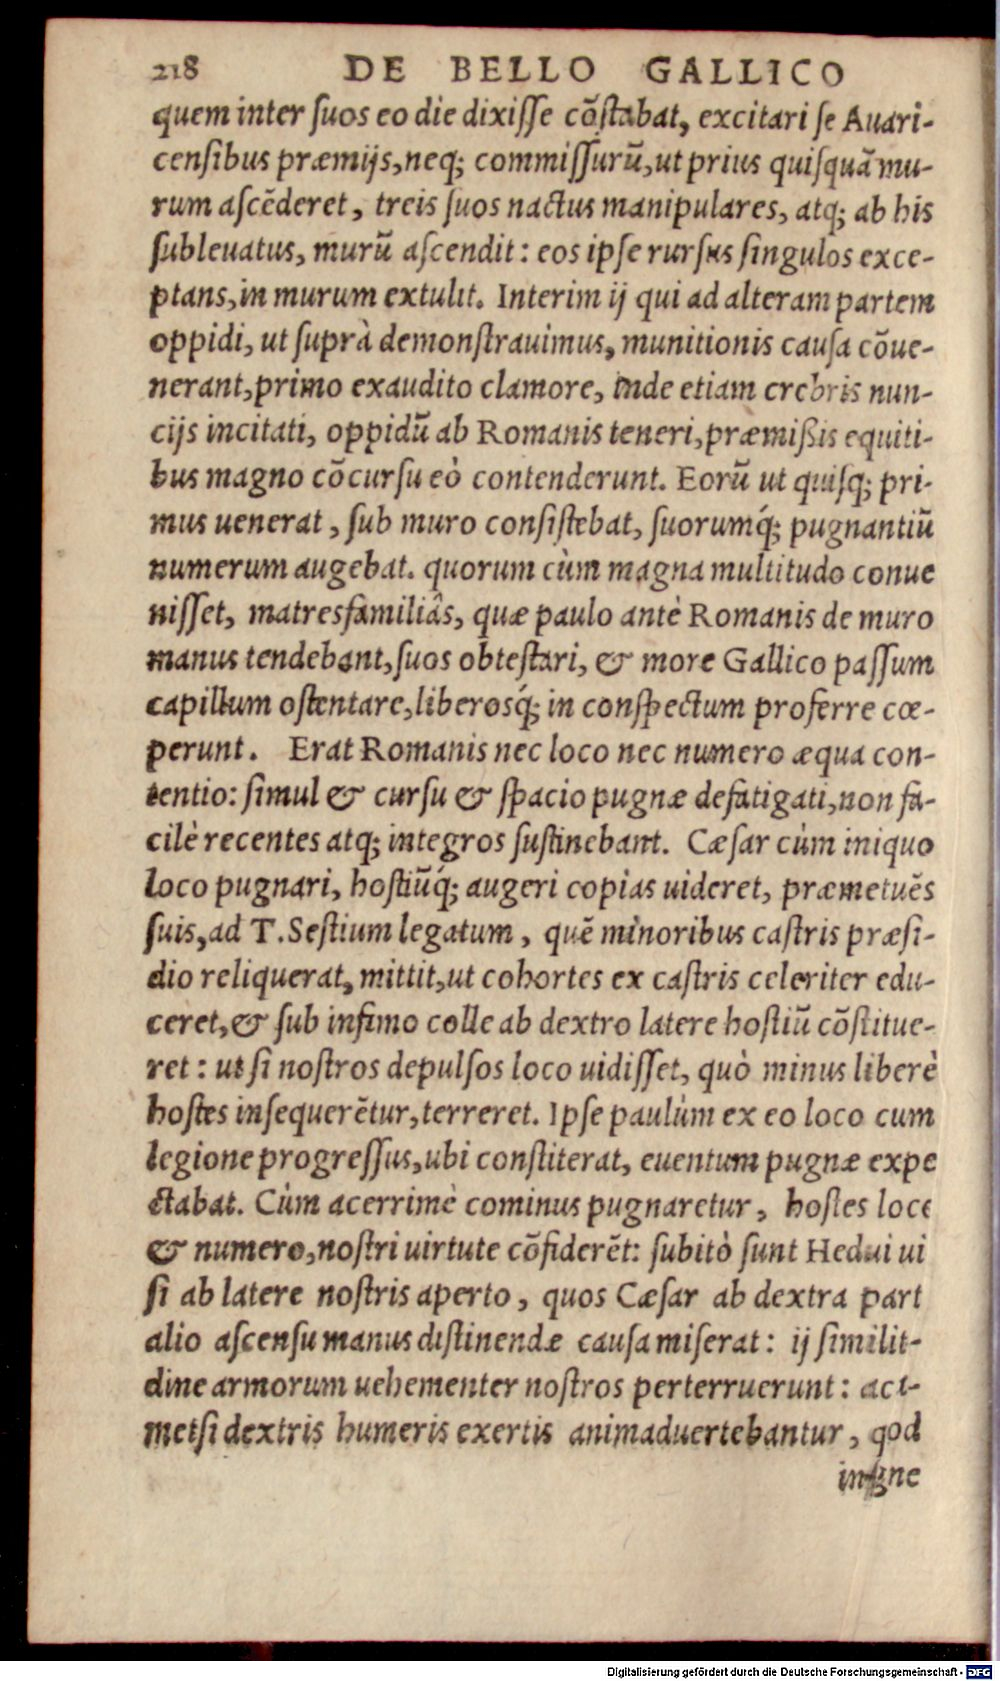 218 DE BELLO GALLICO
quem inter ſuos eo die dixiſſe cõſtabat, excitari ſe Auari-
cenſibus præmijs, neq; commiſſurũ, ut prius quiſquã mu-
rum aſcẽderet, treis ſuos nactus manipulares, atq; ab his
ſubleuatus, murũ aſcendit: eos ipſe rurſus ſingulos exce-
ptans, in murum extulit. Interim ij qui ad alteram partem
oppidi, ut ſuprà demonſtrauimus, munitionis cauſa cõue-
nerant, primo exaudito clamore, inde etiam crebris nun-
cijs incitati, oppidũ ab Romanis teneri, præmißis equiti-
bus magno cõcurſu eò contenderunt. Eorũ ut quiſq; pri-
mus uenerat, ſub muro conſiſtebat, ſuorumq́; pugnantiũ
numerum augebat. quorum cùm magna multitudo conue
niſſet, matresfamiliâs, quæ paulo antè Romanis de muro
manus tendebant, ſuos obteſtari, & more Gallico paſſum
capillum oſtentare, liberosq́; in conſpectum proferre cœ-
perunt. Erat Romanis nec loco nec numero æqua con-
tentio: ſimul & curſu & ſpacio pugnæ defatigati, non fa-
cilè recentes atq; integros ſuſtinebant. Cæſar cùm iniquo
loco pugnari, hoſtiũq́; augeri copias uideret, præmetuẽs
ſuis, ad T. Seſtium legatum, quẽ minoribus caſtris præſi-
dio reliquerat, mittit, ut cohortes ex caſtris celeriter edu-
ceret, & ſub infimo colle ab dextro latere hoſtiũ cõſtitue-
ret: ut ſi noſtros depulſos loco uidiſſet, quò minus liberè
hoſtes inſequerẽtur, terreret. Ipſe paulùm ex eo loco cum
legione progreſſus, ubi conſtiterat, euentum pugnæ expe
ctabat. Cùm acerrimè cominus pugnaretur, hoſtes loco
& numero, noſtri uirtute cõfiderẽt: ſubitò ſunt Hedui ui
ſi ab latere noſtris aperto, quos Cæſar ab dextra part
alio aſcenſu manus diſtinendæ cauſa miſerat: ij ſimilit-
dine armorum uehementer noſtros perterruerunt: ac t-
metſi dextris humeris exertis animaduertebantur, qod
inſigne
Digitalisierung gefördert durch die Deutsche Forschungsgemeinschaft - DFG